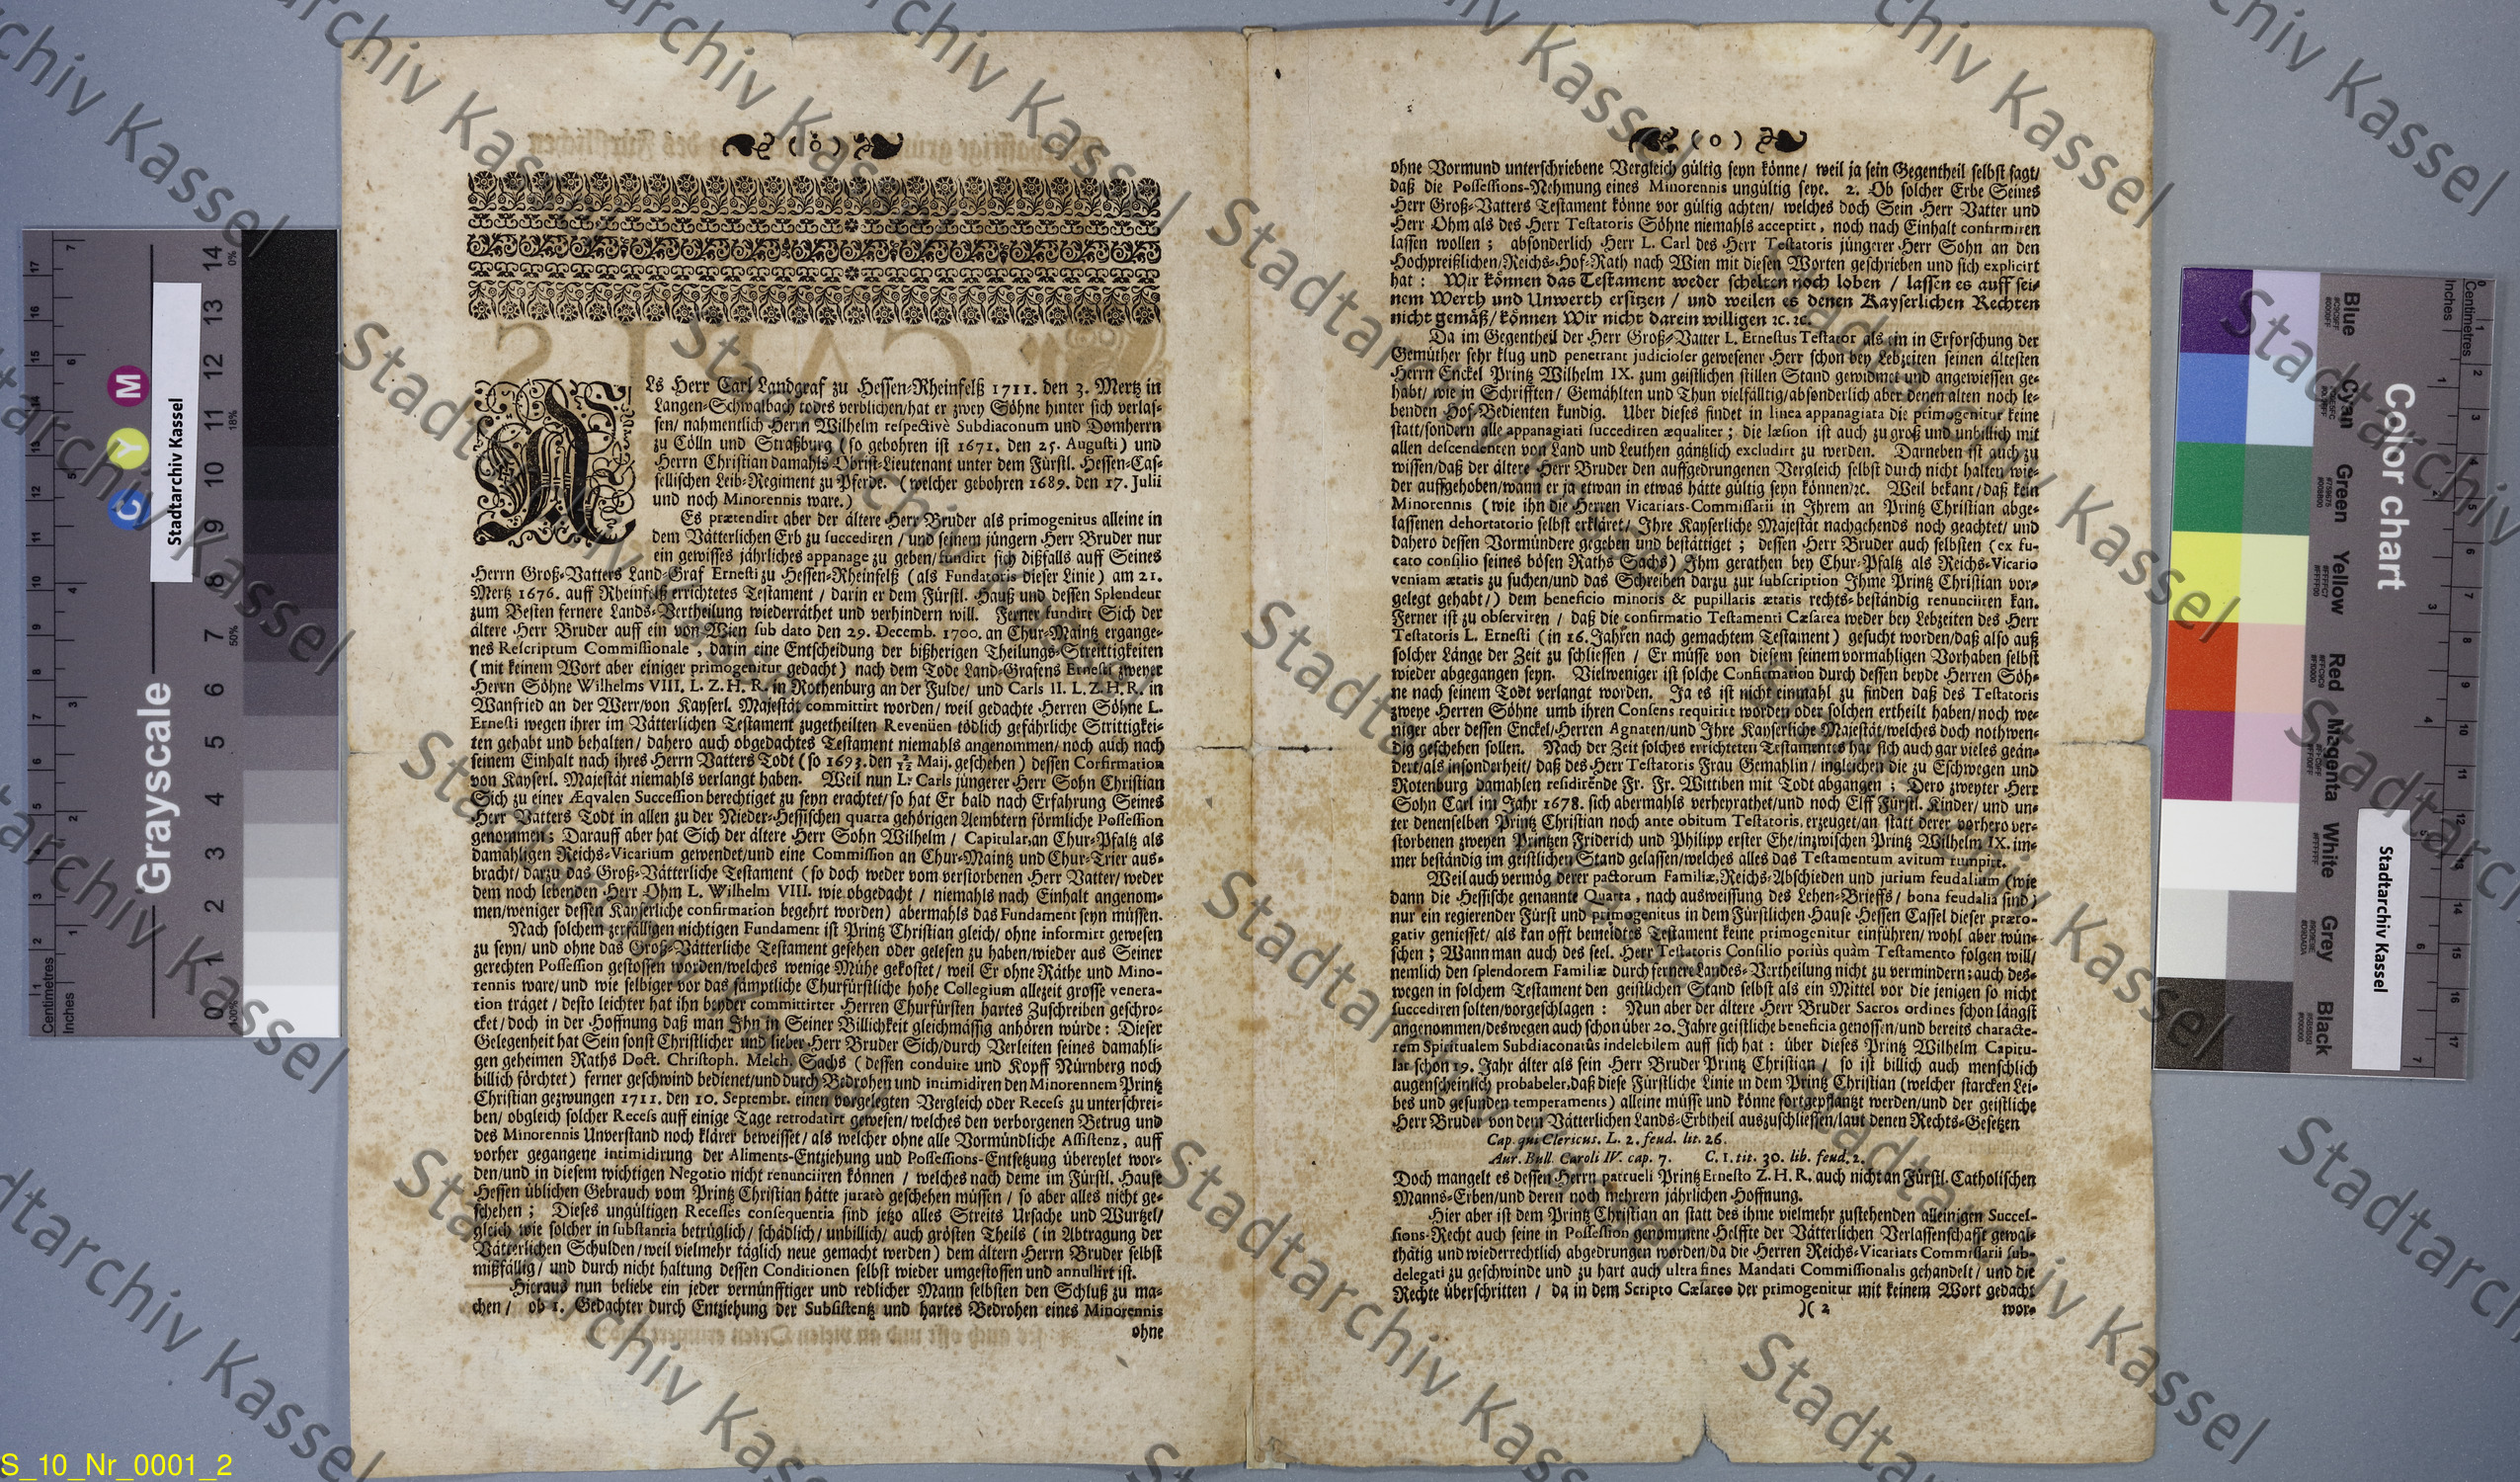 ( o )
ALs Herr Carl Landgraf zu Hessen-Rheinfelß 1711. den 3. Mertz in
Langen-Schwalbach todes verblichen/hat er zwey Söhne hinter sich verlas-
sen/ nahmentlich Herrn Wilhelm respectivè Subdiaconum und Domherrn
zu Cölln und Straßburg (so gebohren ist 1671. den 25. Augusti) und
Herrn Christian damahls Obrist-Lieutenant unter dem Fürstl. Hessen-Cas-
sellischen Leib-Regiment zu Pferde. (welcher gebohren 1689. den 17. Julii
und noch Minorennis ware.)
Es prætendirt aber der ältere Herr Bruder als primogenitus alleine in
dem Vätterlichen Erb zu succediren / und seinem jüngern Herr Bruder nur
ein gewisses jährliches appanage zu geben/ fundirt sich dißfalls auff Seines
Herrn Groß-Vatters Land-Graf Ernesti zu Hessen-Rheinfelß (als Fundatoris dieser Linie) am 21.
Mertz 1676. auff Rheinfelß errichtetes Testament / darin er dem Fürstl. Hauß und dessen Splendeur
zum Besten fernere Lands-Vertheilung wiederräthet und verhindern will. Ferner fundirt Sich der
ältere Herr Bruder auff ein von Wien sub dato den 29. Decemb. 1700. an Chur-Maintz ergange-
nes Rescriptum Commissionale, darin eine Entscheidung der bißherigen Theilungs-Streittigkeiten
(mit keinem Wort aber einiger primogenitur gedacht) nach dem Tode Land-Grafens Ernesti zweyer
Herrn Söhne Wilhelms VIII. L. Z. H. R. in Rothenburg an der Fulde/ und Carls II. L. Z. H. R. in
Wanfried an der Werr/von Kayserl. Majestät committirt worden/ weil gedachte Herren Söhne L.
Ernesti wegen ihrer im Vätterlichen Testament zugetheilten Revenüen tödlich gefährliche Strittigkei-
ten gehabt und behalten/ dahero auch obgedachtes Testament niemahls angenommen/ noch auch nach
seinem Einhalt nach ihres Herrn Vatters Todt (so 1693. den 2/12 Maij. geschehen) dessen Corfirmation
von Kayserl. Majestät niemahls verlangt haben. Weil nun L. Carls jüngerer Herr Sohn Christian
Sich zu einer Æqvalen Succession berechtiget zu seyn erachtet/ so hat Er bald nach Erfahrung Seines
Herr Vatters Todt in allen zu der Nieder-Hessischen quarta gehörigen Aembtern förmliche Possession
genommen; Darauff aber hat Sich der ältere Herr Sohn Wilhelm / Capitular,an Chur-Pfaltz als
damahligen Reichs-Vicarium gewendet/und eine Commission an Chur-Maintz und Chur-Trier aus-
bracht/ darzu das Groß-Vätterliche Testament (so doch weder vom verstorbenen Herr Vatter/ weder
dem noch lebenden Herr Ohm L. Wilhelm VIII. wie obgedacht / niemahls nach Einhalt angenom-
men/weniger dessen Kayserliche confirmation begehrt worden) abermahls das Fundament seyn müssen.
Nach solchem zerfälligen nichtigen Fundament ist Printz Christian gleich/ ohne informirt gewesen
zu seyn/ und ohne das Groß-Vätterliche Testament gesehen oder gelesen zu haben/wieder aus Seiner
gerechten Possession gestossen worden/welches wenige Mühe gekostet/ weil Er ohne Räthe und Mino-
rennis ware/und wie selbiger vor das sämptliche Churfürstliche hohe Collegium allezeit grosse venera-
tion träget / desto leichter hat ihn beyder committirter Herren Churfürsten hartes Zuschreiben geschro-
cket/ doch in der Hoffnung daß man Ihn in Seiner Billichkeit gleichmässig anhören würde: Dieser
Gelegenheit hat Sein sonst Christlicher und lieber Herr Bruder Sich/durch Verleiten seines damahli-
gen geheimen Raths Doct. Christoph. Melch. Sachs (dessen conduite und Kopff Nürnberg noch
billich förchtet) ferner geschwind bedienet/und durch Bedrohen und intimidiren den Minorennem Printz
Christian gezwungen 1711. den 10. Septembr. einen vorgelegten Vergleich oder Recess zu unterschrei-
ben/ obgleich solcher Recess auff einige Tage retrodatirt gewesen/ welches den verborgenen Betrug und
des Minorennis Unverstand noch klärer beweisset/ als welcher ohne alle Vormündliche Assistenz, auff
vorher gegangene intimidirung der Aliments-Entziehung und Possessions-Entsetzung übereylet wor-
den/und in diesem wichtigen Negotio nicht renunciiren können / welches nach deme im Fürstl. Hause
Hessen üblichen Gebrauch vom Printz Christian hätte juratò geschehen müssen / so aber alles nicht ge-
schehen ; Dieses ungültigen Recesses consequentia sind jetzo alles Streits Ursache und Wurtzel/
gleich wie solcher in substantia betrüglich/ schädlich/ unbillich/ auch grösten Theils (in Abtragung der
Vätterlichen Schulden/weil vielmehr täglich neue gemacht werden) dem ältern Herrn Bruder selbst
mißfällig/ und durch nicht haltung dessen Conditionen selbst wieder umgestossen und annullirt ist.
Hieraus nun beliebe ein jeder vernünfftiger und redlicher Mann selbsten den Schluß zu ma-
chen / ob 1. Gedachter durch Entziehung der Subsistentz und hartes Bedrohen eines Minorennis
ohne
( o )
ohne Vormund unterschriebene Vergleich gültig seyn könne/ weil ja sein Gegentheil selbst sagt/
daß die Possessions-Nehmung eines Minorennis ungültig seye. 2. Ob solcher Erbe Seines
Herr Groß-Vatters Testament könne vor gültig achten/ welches doch Sein Herr Vatter und
Herr Ohm als des Herr Testatoris Söhne niemahls acceptirt, noch nach Einhalt confirmiren
lassen wollen ; absonderlich Herr L. Carl des Herr Testatoris jüngerer Herr Sohn an den
Hochpreißlichen/Reichs-Hof-Rath nach Wien mit diesen Worten geschrieben und sich explicirt
hat : Wir können das Testament weder schelten noch loben / lassen es auff sei-
nem Werth und Unwerth ersitzen / und weilen es denen Kayserlichen Rechten
nicht gemäß/ können Wir nicht darein willigen ꝛc. ꝛc.
Da im Gegentheil der Herr Groß-Vatter L. Ernestus Testator als ein in Erforschung der
Gemüther sehr klug und penetrant judicioser gewesener Herr schon bey Lebzeiten seinen ältesten
Herrn Enckel Printz Wilhelm IX. zum geistlichen stillen Stand gewidmet und angewiessen ge-
habt/ wie in Schrifften/ Gemählten und Thun vielfältig/absonderlich aber denen alten noch le-
benden Hof-Bedienten kundig. Uber dieses findet in linea appanagiata die primogenitur keine
statt/sondern alle appanagiati succediren æqualiter ; die læsion ist auch zu groß und unbillich mit
allen descendenten von Land und Leuthen gäntzlich excludirt zu werden. Darneben ist auch zu
wissen/daß der ältere Herr Bruder den auffgedrungenen Vergleich selbst durch nicht halten wie-
der auffgehoben/wann er ja etwan in etwas hätte gültig seyn können/ꝛc. Weil bekant/daß kein
Minorennis (wie ihn die Herren Vicariats-Commissarii in Ihrem an Printz Christian abge-
lassenen dehortatorio selbst erkläret/ Ihre Kayserliche Majestät nachgehends noch geachtet/ und
dahero dessen Vormündere gegeben und bestättiget ; dessen Herr Bruder auch selbsten (ex fu-
cato consilio seines bösen Raths Sachs) Ihm gerathen bey Chur-Pfaltz als Reichs-Vicario
veniam ætatis zu suchen/und das Schreiben darzu zur subscription Ihme Printz Christian vor-
gelegt gehabt/) dem beneficio minoris & pupillaris ætatis rechts-beständig renunciiren kan.
Ferner ist zu observiren / daß die confirmatio Testamenti Cæsarea weder bey Lebzeiten des Herr
Testatoris L. Ernesti (in 16. Jahren nach gemachtem Testament) gesucht worden/daß also auß
solcher Länge der Zeit zu schliessen / Er müsse von diesem seinem vormahligen Vorhaben selbst
wieder abgegangen seyn. Vielweniger ist solche Confirmation durch dessen beyde Herren Söh-
ne nach seinem Todt verlangt worden. Ja es ist nicht einmahl zu finden daß des Testatoris
zweye Herren Söhne umb ihren Consens requirirt worden oder solchen ertheilt haben/ noch we-
niger aber dessen Enckel/Herren Agnaten/und Ihre Kayserliche Majestät/welches doch nothwen-
dig geschehen sollen. Nach der Zeit solches errichteten Testamentes hat sich auch gar vieles geän-
dert/als insonderheit/ daß des Herr Testatoris Frau Gemahlin / ingleichen die zu Eschwegen und
Rotenburg damahlen residirende Fr. Fr. Wittiben mit Todt abgangen ; Dero zweyter Herr
Sohn Carl im Jahr 1678. sich abermahls verheyrathet/und noch Elff Fürstl. Kinder/ und un-
ter denenselben Printz Christian noch ante obitum Testatoris, erzeuget/an statt derer vorhero ver-
storbenen zweyen Printzen Friderich und Philipp erster Ehe/inzwischen Printz Wilhelm IX. im-
mer beständig im geistlichen Stand gelassen/welches alles das Testamentum avitum rumpirt.
Weil auch vermög derer pactorum Familiæ,Reichs-Abschieden und jurium feudalium (wie
dann die Hessische genannte Quarta, nach ausweissung des Lehen-Brieffs/ bona feudalia sind)
nur ein regierender Fürst und primogenitus in dem Fürstlichen Hause Hessen Cassel dieser præro-
gativ geniesset/ als kan offt bemeldtes Testament keine primogenitur einführen/ wohl aber wün-
schen ; Wann man auch des seel. Herr Testatoris Consilio poriùs quàm Testamento folgen will/
nemlich den splendorem Familiæ durch fernere Landes-Vertheilung nicht zu vermindern; auch des-
wegen in solchem Testament den geistlichen Stand selbst als ein Mittel vor die jenigen so nicht
succediren solten/vorgeschlagen : Nun aber der ältere Herr Bruder Sacros ordines schon längst
angenommen/deswegen auch schon über 20. Jahre geistliche beneficia genossen/und bereits characte-
rem Spiritualem Subdiaconatûs indelebilem auff sich hat : über dieses Printz Wilhelm Capitu-
lar schon 19. Jahr älter als sein Herr Bruder Printz Christian / so ist billich auch menschlich
augenscheinlich probabeler,daß diese Fürstliche Linie in dem Printz Christian (welcher starcken Lei-
bes und gesunden temperaments) alleine müsse und könne fortgepflantzt werden/und der geistliche
Herr Bruder von dem Vätterlichen Lands-Erbtheil auszuschliessen/laut denen Rechts-Gesetzen
Cap. qui Clericus. L. 2. feud. tit. 26.
Aur. Bull. Caroli IV. cap. 7. C. 1. tit. 30. lib. feud. 2.
Doch mangelt es dessen Herrn patrueli Printz Ernesto Z. H. R. auch nicht an Fürstl. Catholischen
Manns-Erben/und deren noch mehrern jährlichen Hoffnung.
Hier aber ist dem Printz Christian an statt des ihme vielmehr zustehenden alleinigen Succes-
sions-Recht auch seine in Possession genommene Helffte der Vätterlichen Verlassenschafft gewal-
thätig und wiederrechtlich abgedrungen worden/da die Herren Reichs-Vicariats Commissarii sub-
delegati zu geschwinde und zu hart auch ultra fines Mandati Commissionalis gehandelt/ und die
Rechte überschritten / da in dem Scripto Cæsareo der primogenitur mit keinem Wort gedacht
)( 2
wor-
Grayscale
Centimetres
Inches
C Y M
Stadtarchiv Kassel
Color chart
Blue
Cyan
Green
Yellow
Red
Magenta
White
Grey
Black
Inches
Centimetres
Stadtarchiv Kassel
S_10_Nr_0001_2